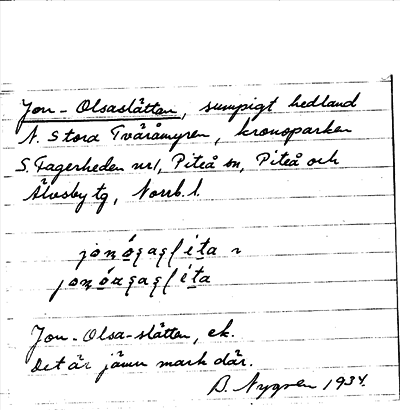 Jon-Olsaslätten, sumpigt hedland
N. Stora Tväråmyren, kronoparken
S. Fagerheden nr1, Piteå sn, Piteå och
Älvsby tg, Norrb. l.
Jon-Olsa-slätten, ek.
Det är jämn mark där.
B. Nygren 1934.